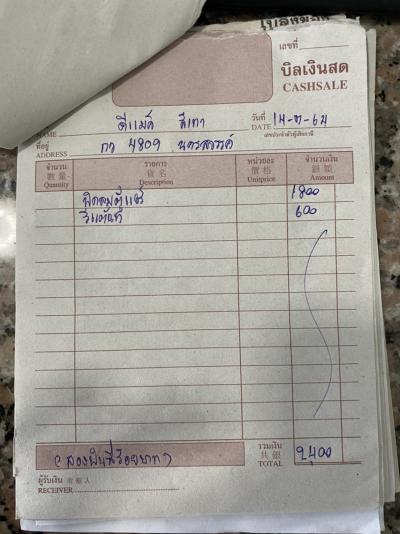 เลขที่
บิลเงินสด
CASHSALE
NAME ดีแม็ค สีเทา วันที่ DATE 14-7-64
เลขประจำตัวผู้เสียภาษี
ที่อยู่ ADDRESS กา 4809 นครสวรรค์
จำนวน รายการ หน่วยละ จำนวนเงิน
數量 貨名 價格 銀額
Quantity Description Unitprice Amount
1800
600
(สองพันสี่ร้อยบาท) รวมเงิน 共銀 TOTAL 2400
ผู้รับเงิน 收銀人
RECEIVER